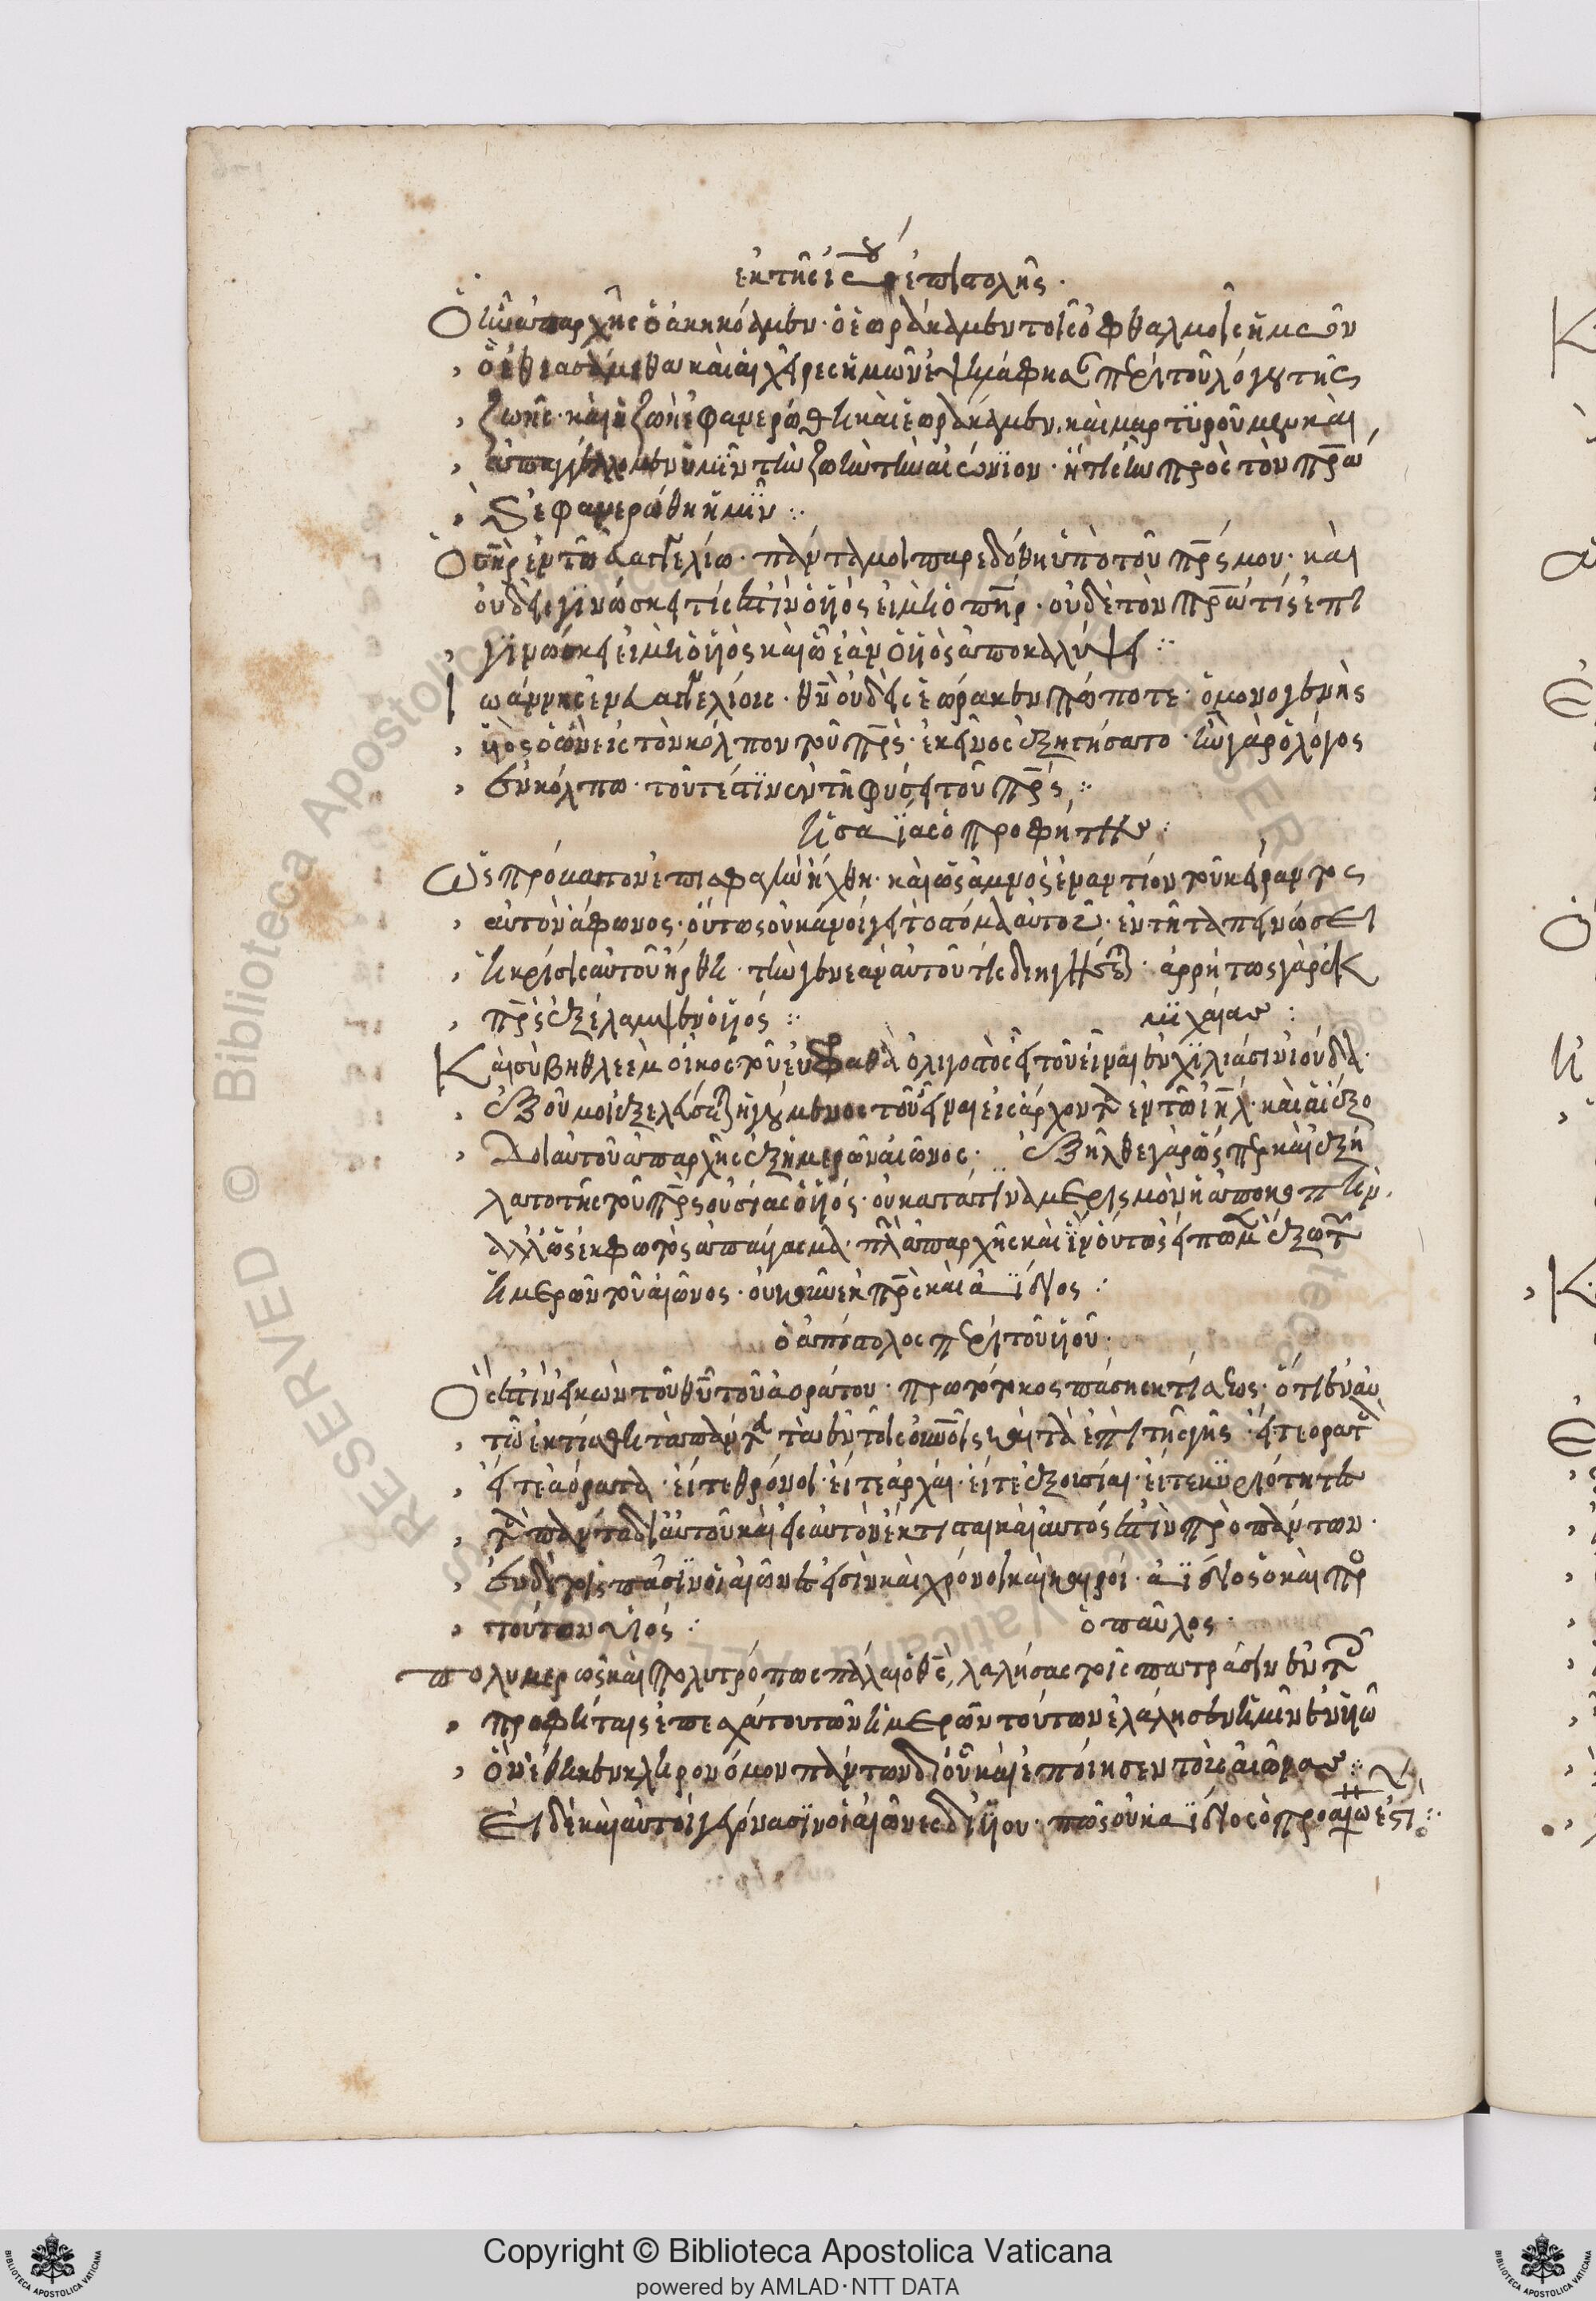 ἐκ τῆς ἰω ἐπιστολῆς·
Ὃ ἦν ἀπαρχῆς ὃ ἀκηκόαμεν· ὃ ἑωράκαμεν τοῖς ὀφθαλμοῖς ἡμῶν
ὃ ἐθεασάμεθα καὶ αἱ χεῖρες ἡμῶν ἐψηλάφησ περὶ τοῦ λόγου τῆς
ζωῆς· καὶ ἡ ζωὴ ἐφανερώθη καὶ ἑωράκαμεν, καὶ μαρτυροῦμεν καὶ
ἀπαγγέλλομεν ὑμῖν τὴν ζωὴν τὴν αἰώνιον· ἥτις ἦν πρὸς τὸν πρα
καὶ ἐφανερώθη ἡμῖν :·
Ὁ σηρ ἐν τῷ εὐαγγελίω· πάντα μοι παρεδόθη ὑπὸ τοῦ πρς μου· καὶ
οὐδεὶς γινώσκει τίς ἐστὶν ὁ υἱὸς εἰμὴ ὁ πηρ· οὐδὲ τὸν πρα τίς ἐπι
γινώσκει εἰμὴ ὁ υἱὸς καὶ ᾧ ἐὰν ὁ υἱὸς ἀποκαλύψει :·
Ιωάννης ἐν εὐαγγελίοις· θν οὐδεὶς ἑώρακεν πώποτε· ὁ μονογενὴς
υἱὸς ὁ ὢν εἰς τὸν κόλπον τοῦ πρς· ἐκεῖνος ἐξηγήσατο· ἦν γὰρ ὁ λόγος
ἐν κόλπω· τουτέστιν ἐν τῇ φύσει τοῦ πρς :·
ἡσαΐας ὁ προφήτης :
Ὡς πρόβατον ἐπι σφαγὴν ἤχθη· καὶ ὡς ἀμνὸς ἐναντίον τοῦ κείραντος
αὐτὸν ἄφωνος· οὕτως οὐκ ἀνοίγει τὸ στόμα αὐτοῦ· ἐν τῇ ταπεινώσει
ἡ κρίσις αὐτοῦ ἤρθη· τὴν γενεὰν αὐτοῦ τίς διηγήσεται· ἀρρήτως γὰρ ἐκ
πρς ἐξέλαμψεν ὁ υἱός :· μιχαίας :
Καὶ σὺ βηθλεὲμ οἶκος τοῦ ἐφραθὰ ὀλιγοστὸς εἶ τοῦ εἶναι ἐν χιλιάσιν ἰούδα·
ἐξ οὗ μοι ἐξελεύσεται ἡγούμενος τοῦ εἶναι εἰς ἄρχοντα ἐν τῷ ιηλ· καὶ αἱ ἔξο
δοι αὐτοῦ ἀπαρχῆς ἐξ ἡμερῶν αἰῶνος· ἐξῆλθε γὰρ ὥσπερ καὶ ἐξή
λατο τῆς τοῦ πρς οὐσίας ὁ υἱός· οὐ κατά τινα μερισμὸν ἢ ἀποκοπὴν,
ἀλλ' ὡς ἐκ φωτὸς ἀπαύγασμα·
ἡμερῶν τοῦ αἰῶνος· οὐκοῦν ἐκ πρς καὶ ἀΐδιος :
ὁ ἀπόστολος περὶ τοῦ υἱοῦ·
Ὅς ἐστιν εἰκὼν τοῦ θυ τοῦ ἀοράτου· πρωτότοκος πάσης κτίσεως· ὅτι ἐν αὐ
τῷ ἐκτίσθη τὰ πάντα τὰ ἐν τοῖς οὐνοῖς καὶ τὰ ἐπὶ τῆς γῆς· εἴτε ὁρατὰ
εἴτε ἀόρατα· εἴτε θρόνοι· εἴτε ἀρχαί· εἴτε ἐξουσίαι· εἴτε κυριότητες
τὰ πάντα δι αὐτοῦ καὶ εἰς αὐτὸν ἔκτισται καὶ αὐτός ἐστιν πρὸ πάντων·
ἐν δὲ τοῖς πᾶσιν οἱ αἰῶνες εἰσὶν καὶ χρόνοι καὶ καιροί· ἀΐδιος ὁ καὶ πρὸ
τούτων υἱός : ὁ παῦλος·
πολυμερῶς καὶ πολυτρόπως πάλαι ὁ θς, λαλήσας τοῖς πατράσιν ἐν τοῖς
προφήταις ἐπεσχάτου τῶν ἡμερῶν τούτων ἐλάλησεν ἡμῖν ἐν υἱῷ
ὃν ἔθηκεν κληρονόμον πάντων δι οὗ καὶ ἐποίησεν τοὺς αἰῶνας :·
Εἰ δὲ καὶ αὐτοὶ γεγόνασιν οἱ αἰῶνες δι υἱου· πῶς οὐκ ἀΐδιος ὁ προαιω ἐστ :·